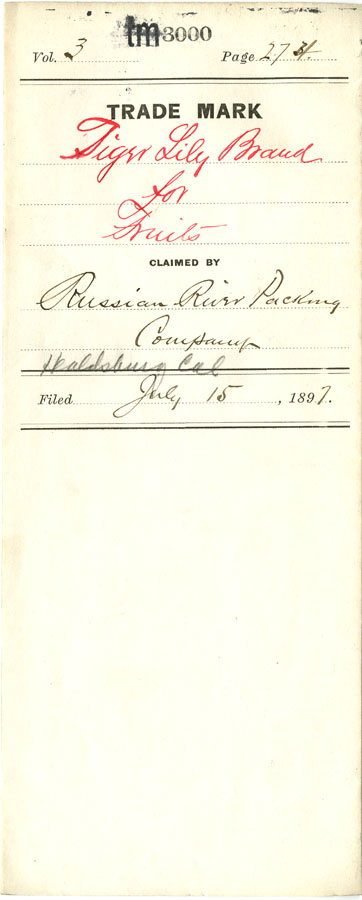 tm 3000
Vol. 3 Page 274.
TRADE MARK
Tiger Lily Brand
for
Fruits
CLAIMED BY
Russian River Packing
Company
Healdsburg Cal
Filed July 15, 1897.